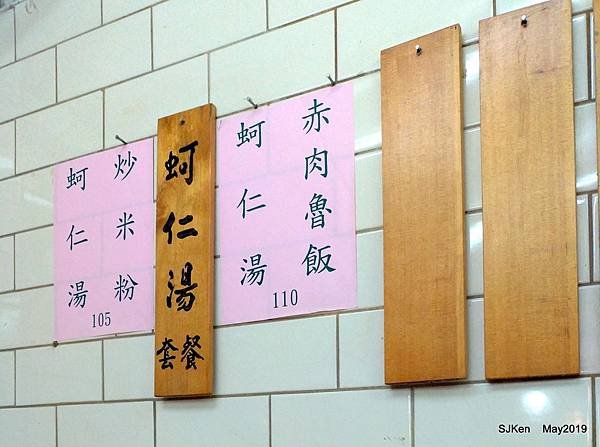 赤肉魯飯
蚵仁湯
110
蚵仁湯
套餐
炒米粉
蚵仁湯
105
SJKen May2019